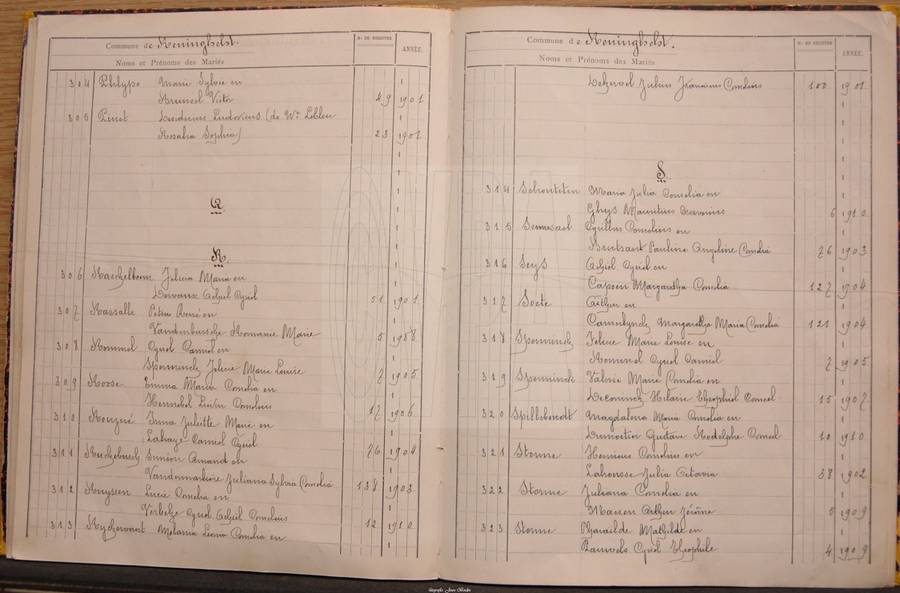 Commune de Reninghelst.
Nos DE REGISTRE
ANNÉE.
Noms et Prénoms des Mariés
304 Philypo Marie Sylvie en
Bruneel Victor 49 1901
305 Pinet Desiderius Ludovicus (de We Lebleu
Rosalia Sophia) 23 1901
Q.
R.
306 Raeckelboom Julia Maria en
Achiel Cyriel 51 1901
307 Rassalle Petrus René en
Vandenbussche Romanie Marie 5 1908
308 Rommel Cyriel Camiel en
Spenninck Jeline Marie Louise 7 1905
309 Roose Emma Maria Cornelia en
Hennebel Lucien Cornelius 17 1906
310 Rouzeré Irma Juliette Marie en
Lahaye Camiel Cyriel 76 1904
311 Ruckebusch Siméon Amand en
Vandemarliere Juliana Sylvia Cornelia 138 1903
312 Ruyssen Lucie Cornelia en
Verbeke Cyriel Achiel Cornelius 12 1910
313 Ryckewaert Melania Lucia Cornelia en
Commune de Reninghelst.
Nos DE REGISTRE
ANNÉE.
Noms et Prénoms des Mariés
Dekervel Julius Franciscus Cornelius 100 1901
S.
314 Schoutteten Maria Julia Cornelia en
Ghys Mauritius 6 1910
315 Sennesael Cyrillus Cornelius en
Pauline Angeline Cornelia 76 1903
316 Seys Achiel Cyriel en
Capoen Margaretha Cornelia 127 1904
317 Soete Arthur en
Camerlynck Margaretha Maria Cornelia 121 1904
318 Spenninck Jeline Marie Louise en
Rommel Cyriel Camiel 7 1905
319 Spenninck Valerie Marie Cornelia en
Deconinck Hilarie Theophiel Corneel 15 1907
320 Spillebendt Magdalena Maria Cornelia en
Dumortier Gustave Rodolphe Corneel 10 1910
321 Storme Henricus Cornelius en
Lahousse Julia Octavia 38 1902
322 Storme Juliana Cornelia en
Masson Arthur Jérôme 5 1909
323 Storme Pharaïlde Mathilde en
Pauwels Cyriel Theophile 4 1909